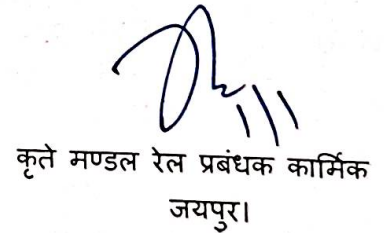 कृते मण्डल रेल प्रबंधक कार्मिक
जयपुर।